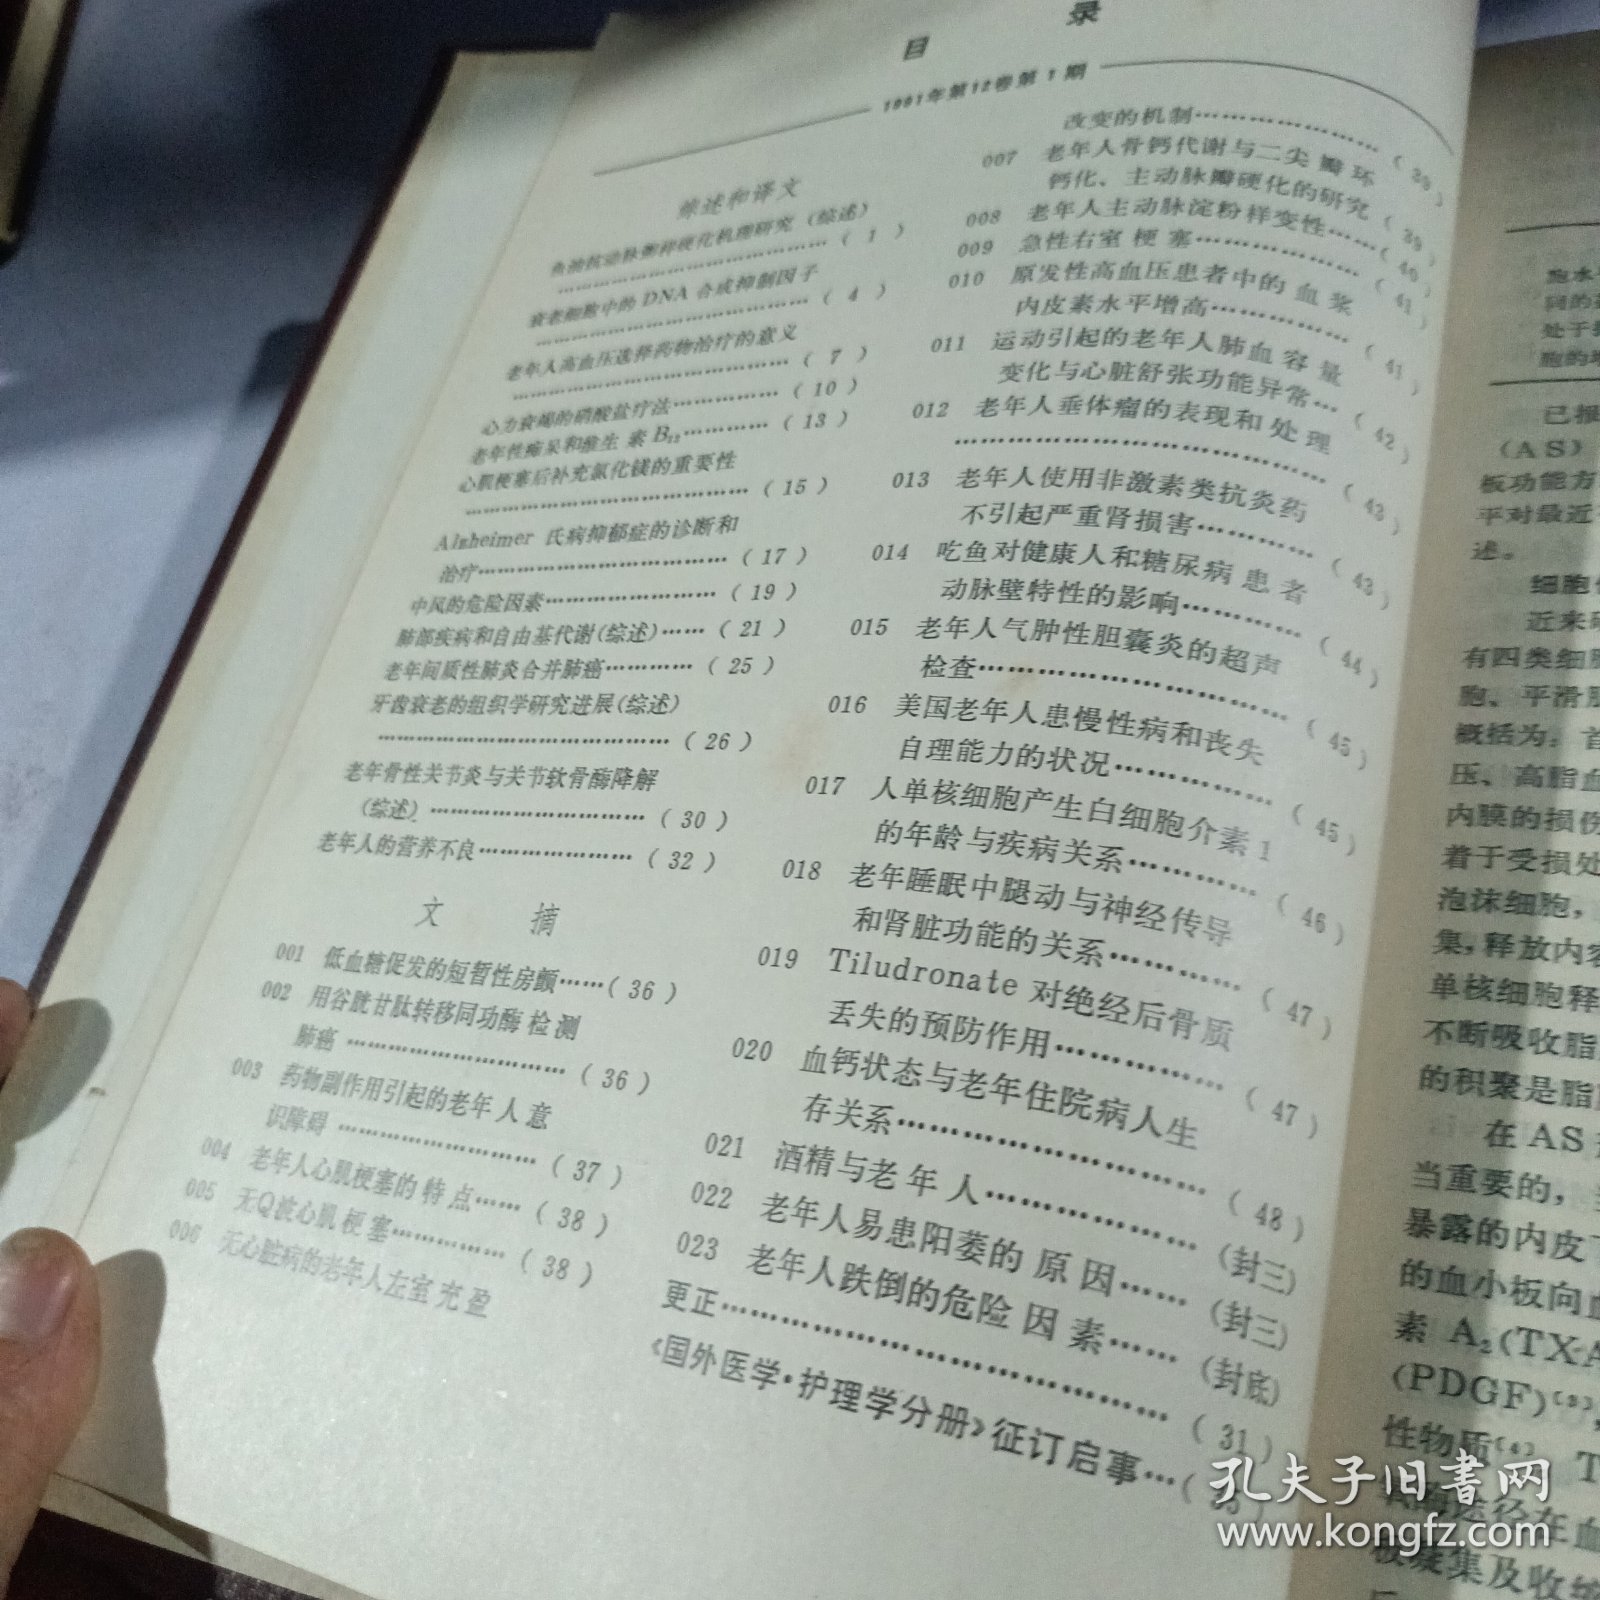 目 录
1991年第12卷第1期
综述和译文
鱼油抗动脉粥样硬化机理研究（综述）
……………………………（1）
衰老细胞中的DNA合成抑制因子
……………………………（4）
老年人高血压选择药物治疗的意义
……………………………（7）
心力衰竭的硝酸盐疗法……………（10）
老年性痴呆和维生 素B₁₂…………（13）
心肌梗塞后补充氯化镁的重要性
……………………………（15）
Alzheimer 氏病抑郁症的诊断和
治疗……………………………（17）
中风的危险因素……………………（19）
肺部疾病和自由基代谢(综述)……（21）
老年间质性肺炎合并肺癌…………（25）
牙齿衰老的组织学研究进展(综述)
……………………………（26）
老年骨性关节炎与关节软骨酶降解
（综述）……………………………（30）
老年人的营养不良…………………（32）
文 摘
001 低血糖促发的短暂性房颤……（36）
002 用谷胱甘肽转移同功酶 检 测
肺癌 …………………………（36）
003 药物副作用引起的老年 人 意
识障碍 ………………………（37）
004 老年人心肌梗塞的 特 点……（38）
005 无Q波心肌 梗 塞……………（38）
006 无心脏病的老年人左室 充 盈
改变的机制……………………（39）
007 老年人骨钙代谢与二尖 瓣 环
钙化、主动脉瓣硬化的研究（39）
008 老年人主动脉淀粉样变性……（40）
009 急性右室 梗 塞………………（41）
010 原发性高血压患者中的 血 浆
内皮素水平增高………………（41）
011 运动引起的老年人肺血 容 量
变化与心脏舒张功能异常…（42）
012 老年人垂体瘤的表现和 处 理
……………………………（43）
013 老年人使用非激素类抗炎药
不引起严重肾损害……………（43）
014 吃鱼对健康人和糖尿病 患 者
动脉壁特性的影响……………（44）
015 老年人气肿性胆囊炎的超声
检查……………………………（45）
016 美国老年人患慢性病和丧失
自理能力的状况………………（45）
017 人单核细胞产生白细胞介素1
的年龄与疾病关系……………（46）
018 老年睡眠中腿动与神经传导
和肾脏功能的关系……………（47）
019 Tiludronate 对绝经后骨质
丢失的预防作用………………（47）
020 血钙状态与老年住院病人生
存关系…………………………（48）
021 酒精与老 年 人………………（封三）
022 老年人易患阳萎的 原 因……（封三）
023 老年人跌倒的危险 因 素……（封底）
更正……………………………（31）
《国外医学·护理学分册》征订启事…（
胞水
同的
处于
胞的
已报
（AS）
板功能方
平对最近
述。
细胞
近来
有四类细胞
胞、平滑
概括为：首
压、高脂血
内膜的损伤
着于受损处
泡沫细胞，
集，释放内容
单核细胞释
不断吸收脂
的积聚是脂
在AS
当重要的，
暴露的内皮下
的血小板向
素 A₂(TX-A
(PDGF)⁽³⁾，
性物质⁽⁴⁾。T
途径在血
板凝集及收缩
孔夫子旧书网
www.kongfz.com